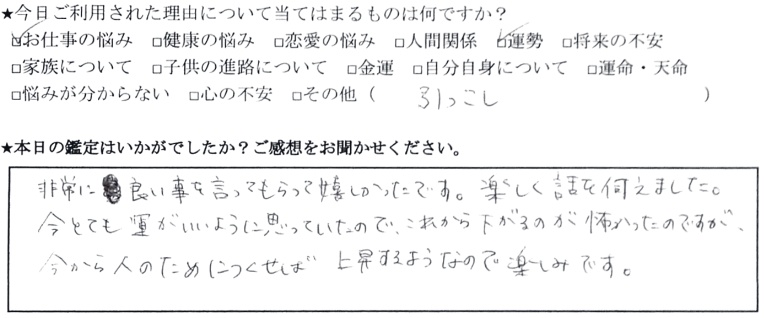 ★今日ご利用された理由について当てはまるものは何ですか？
☑お仕事の悩み □健康の悩み □恋愛の悩み □人間関係 ☑運勢 □将来の不安
□家族について □子供の進路について □金運 □自分自身について □運命・天命
□悩みが分からない □心の不安 □その他（ 引っこし ）
★本日の鑑定はいかがでしたか？ご感想をお聞かせください。
非常に良い事を言ってもらって嬉しかったです。楽しく話を伺えました。
今とても運がいいように思っていたので、これから下がるのが怖かったのですが、
今から人のためにつくせば上昇するようなので楽しみです。